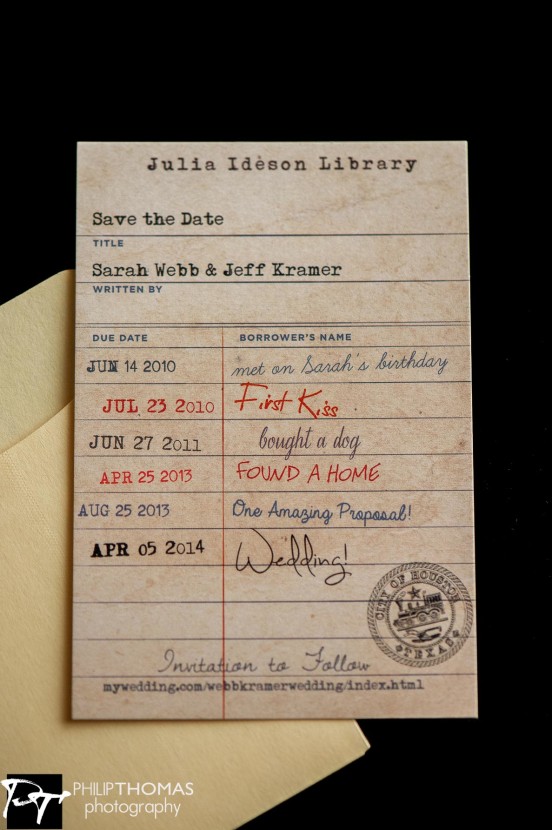 Julia Ideson Library
Save the Date
TITLE
Sarah Webb & Jeff Kramer
WRITTEN BY
DUE DATE BORROWER'S NAME
JUN 14 2010 met on Sarah's birthday
JUL 23 2010 First Kiss
JUN 27 2011 bought a dog
APR 25 2013 FOUND A HOME
AUG 25 2013 One Amazing Proposal!
APR 05 2014 Wedding!
CITY OF HOUSTON
TEXAS
Invitation to Follow
mywedding.com/webbkramerwedding/index.html
PT PHILIPTHOMAS
photography